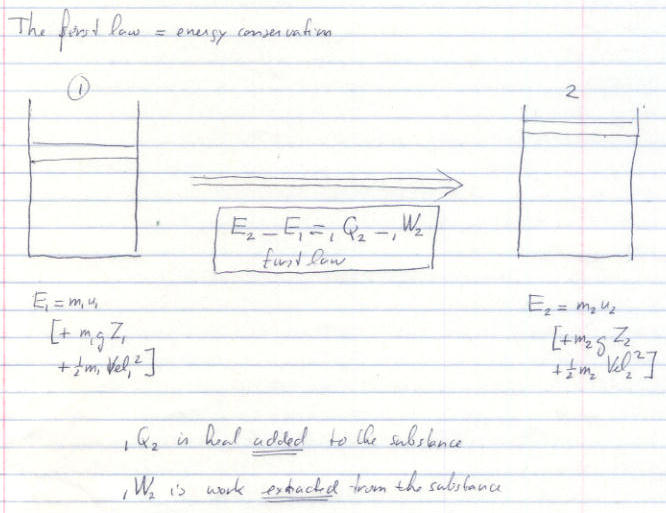 The first law = energy conservation
① 2
E₂ - E₁ = ₁Q₂ - ₁W₂
first law
E₁ = m₁u₁
[+ m₁gZ₁
+ ½m₁ Vel₁²]
E₂ = m₂u₂
[+ m₂gZ₂
+ ½m₂ Vel₂²]
₁Q₂ is heat added to the substance
₁W₂ is work extracted from the substance